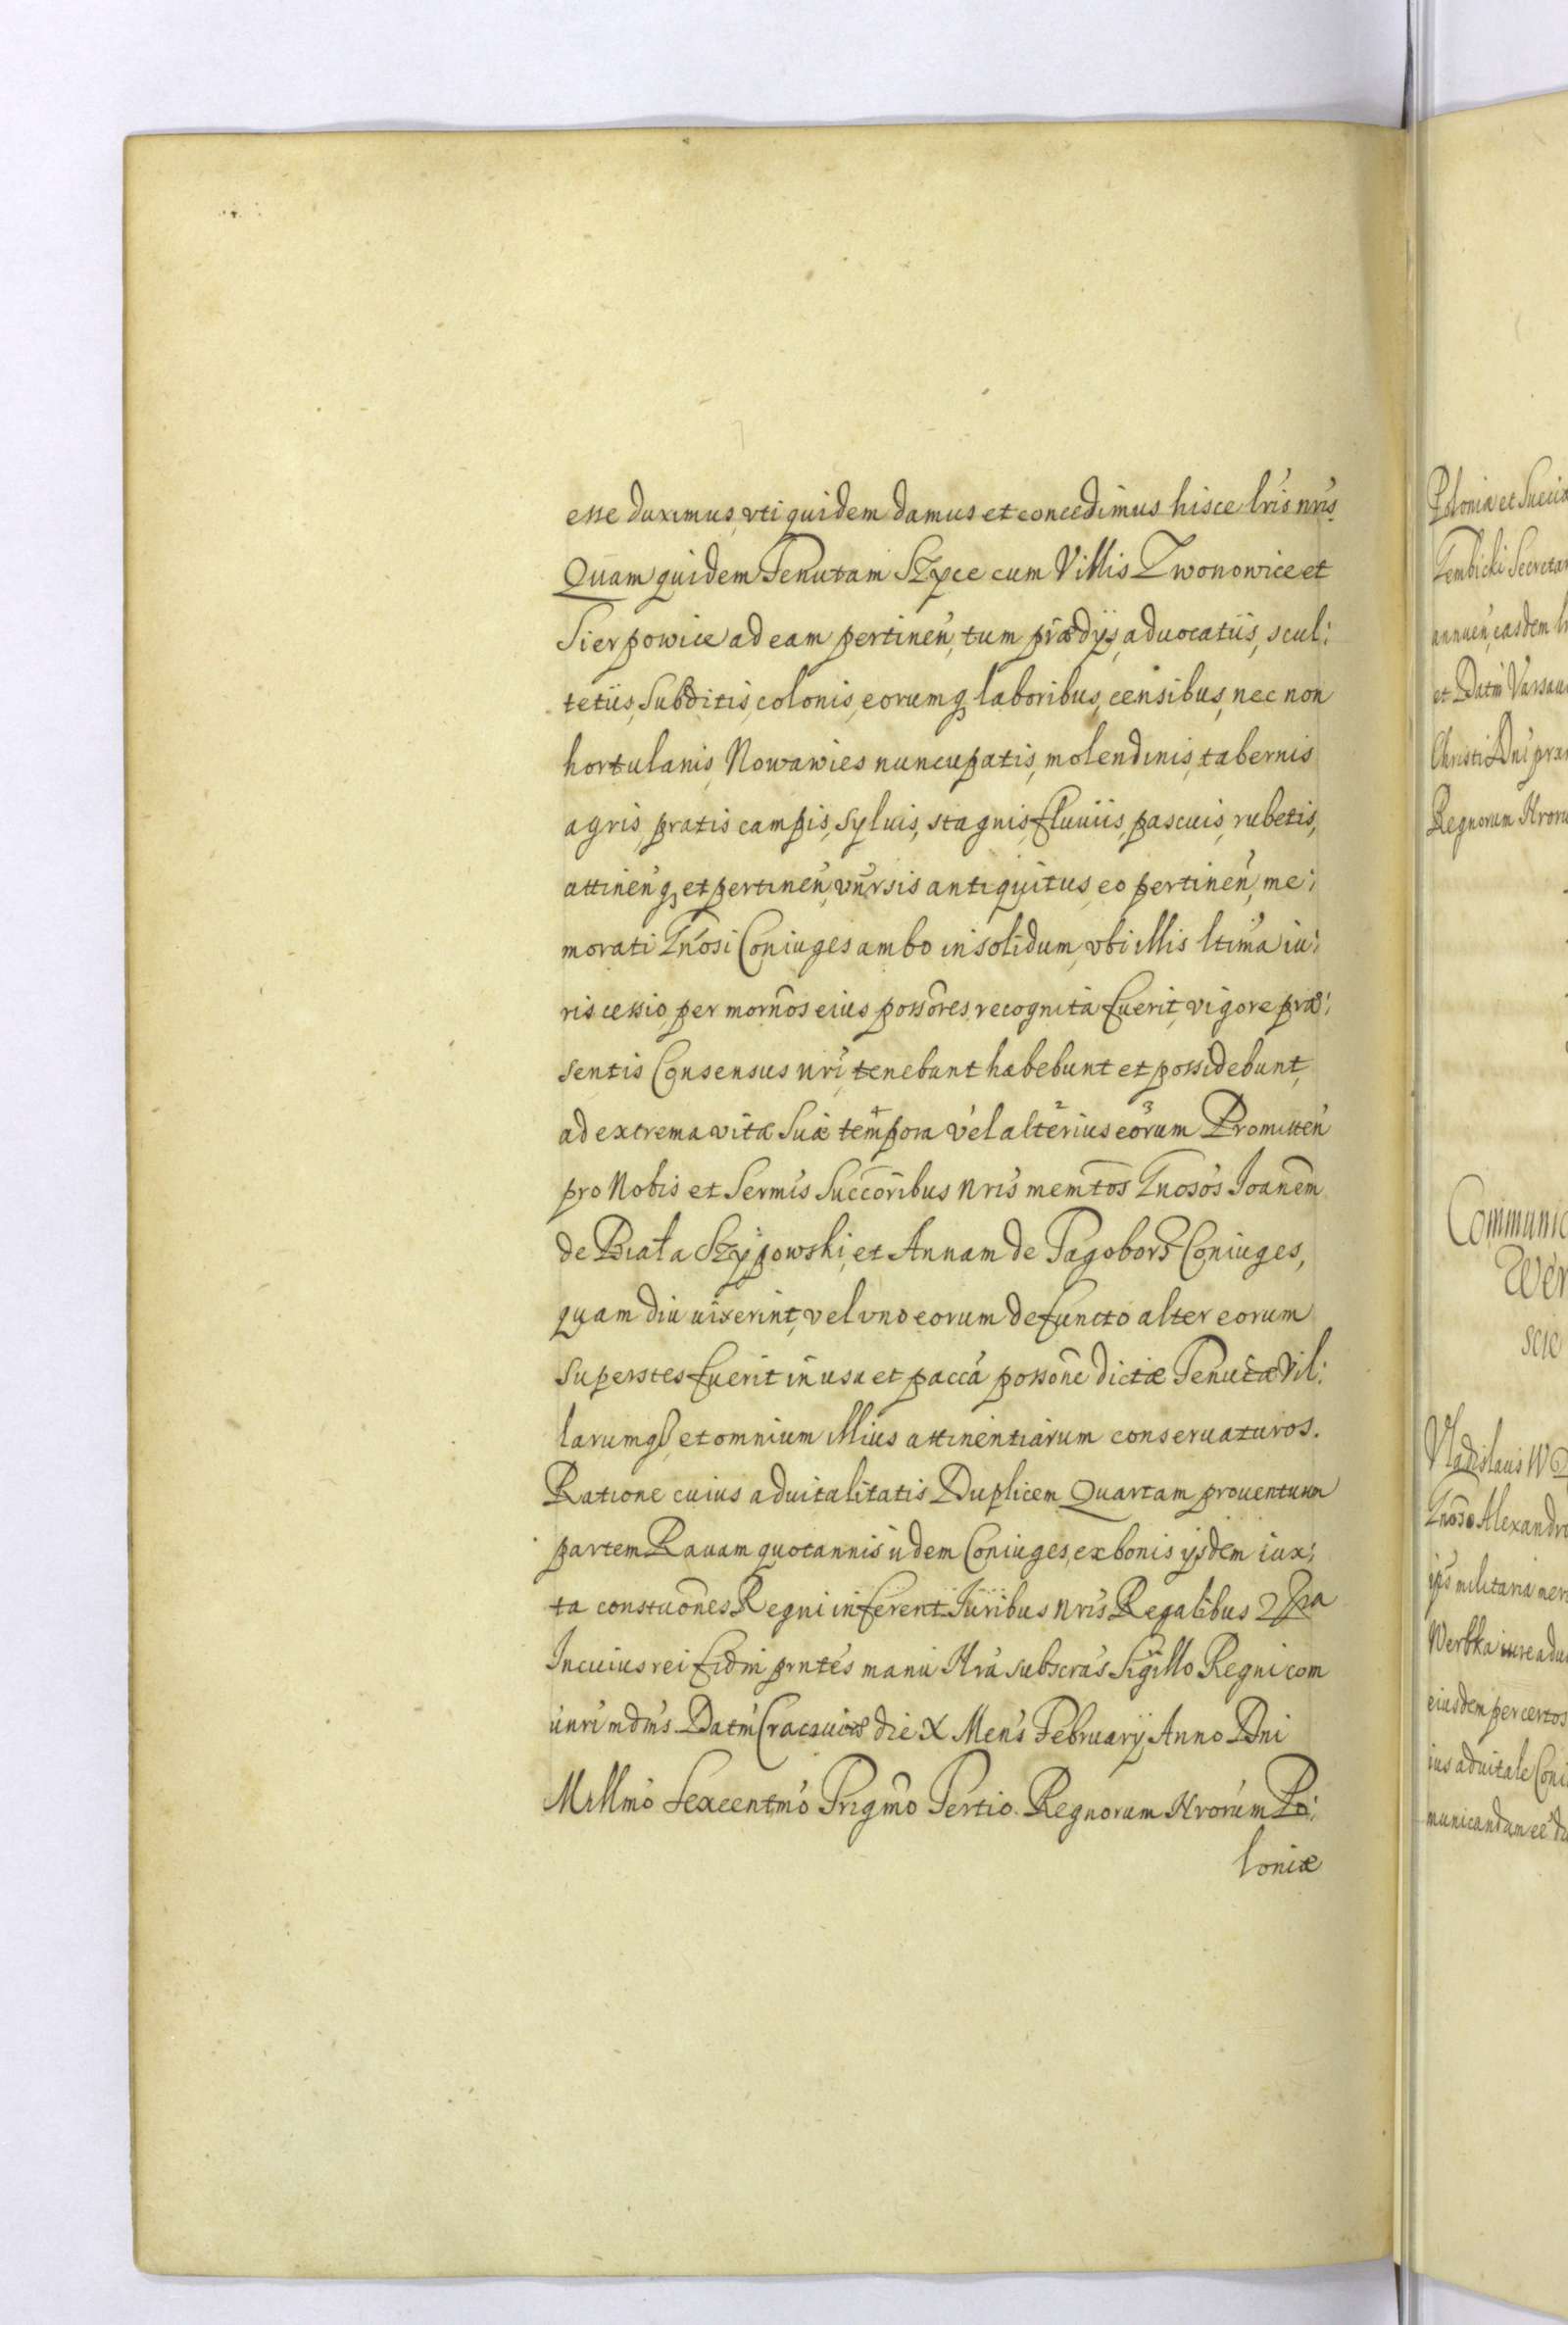 esse duximus, vti quidem damus et concedimus hisce lris nris.
Quam quidem Tenutam Szyce cum Villis Zwonowice et
Sierpowice ad eam pertinen, tum prædijs, aduocatiis, scul:
tetiis, Subditis, colonis, eorumq laboribus, censibus, nec non
hortulanis, Nowawies nuncupatis, molendinis, tabernis
agris, pratis campis, syluis, stagnis, fluuiis, pascuis, rubetis,
attinenq, et pertinen, vnrsis antiquitus eo pertinen, me:
morati Gnosi Coniuges ambo insolidum, vbi illis ltima iu:
ris cessio per mornos eius possores recognita fuerit, vigore præ:
sentis Consensus nri, tenebunt habebunt et possidebunt,
ad extrema vitæ suæ tempora vel alterius eorum Promitten
pro Nobis et Sermis Succoribus nris memtos Gnosos Joanem
de Biała Szypowski, et Annam de Pagoborz Coniuges,
quam diu uixerint, vel vno eorum defuncto alter eorum
superstes fuerit in usu et pacca possone dictæ Tenutæ Vil:
larumq, et omnium illius attinentiarum conseruaturos.
Ratione cuius aduitalitatis Duplicem Quartam prouentuum
partem Rauam quotannis iidem Coniuges, ex bonis ijsdem iux:
ta constuones Regni inferent Juribus nris Regalibus
In cuius rei fidm prntes manu Nra subscras Sigillo Regni com
unri mdms. Datm Cracouiæ die X Mens February Anno Dni
Millmo Sexcentmo Trigmo Tertio. Regnorum Nrorum Po:
loniæ
Poloniæ et Sueciæ
Gembicki Secretar
annuen, easdem
et Datm Varsau
Christi Dni præ
Regnorum Nroru
Communic
Wer
scie
Vladislaus
Gnoso Alexandro
ips militaria mer
Werbka iure adui
eiusdem per certos
ius aduitale Coni
municandum ee du